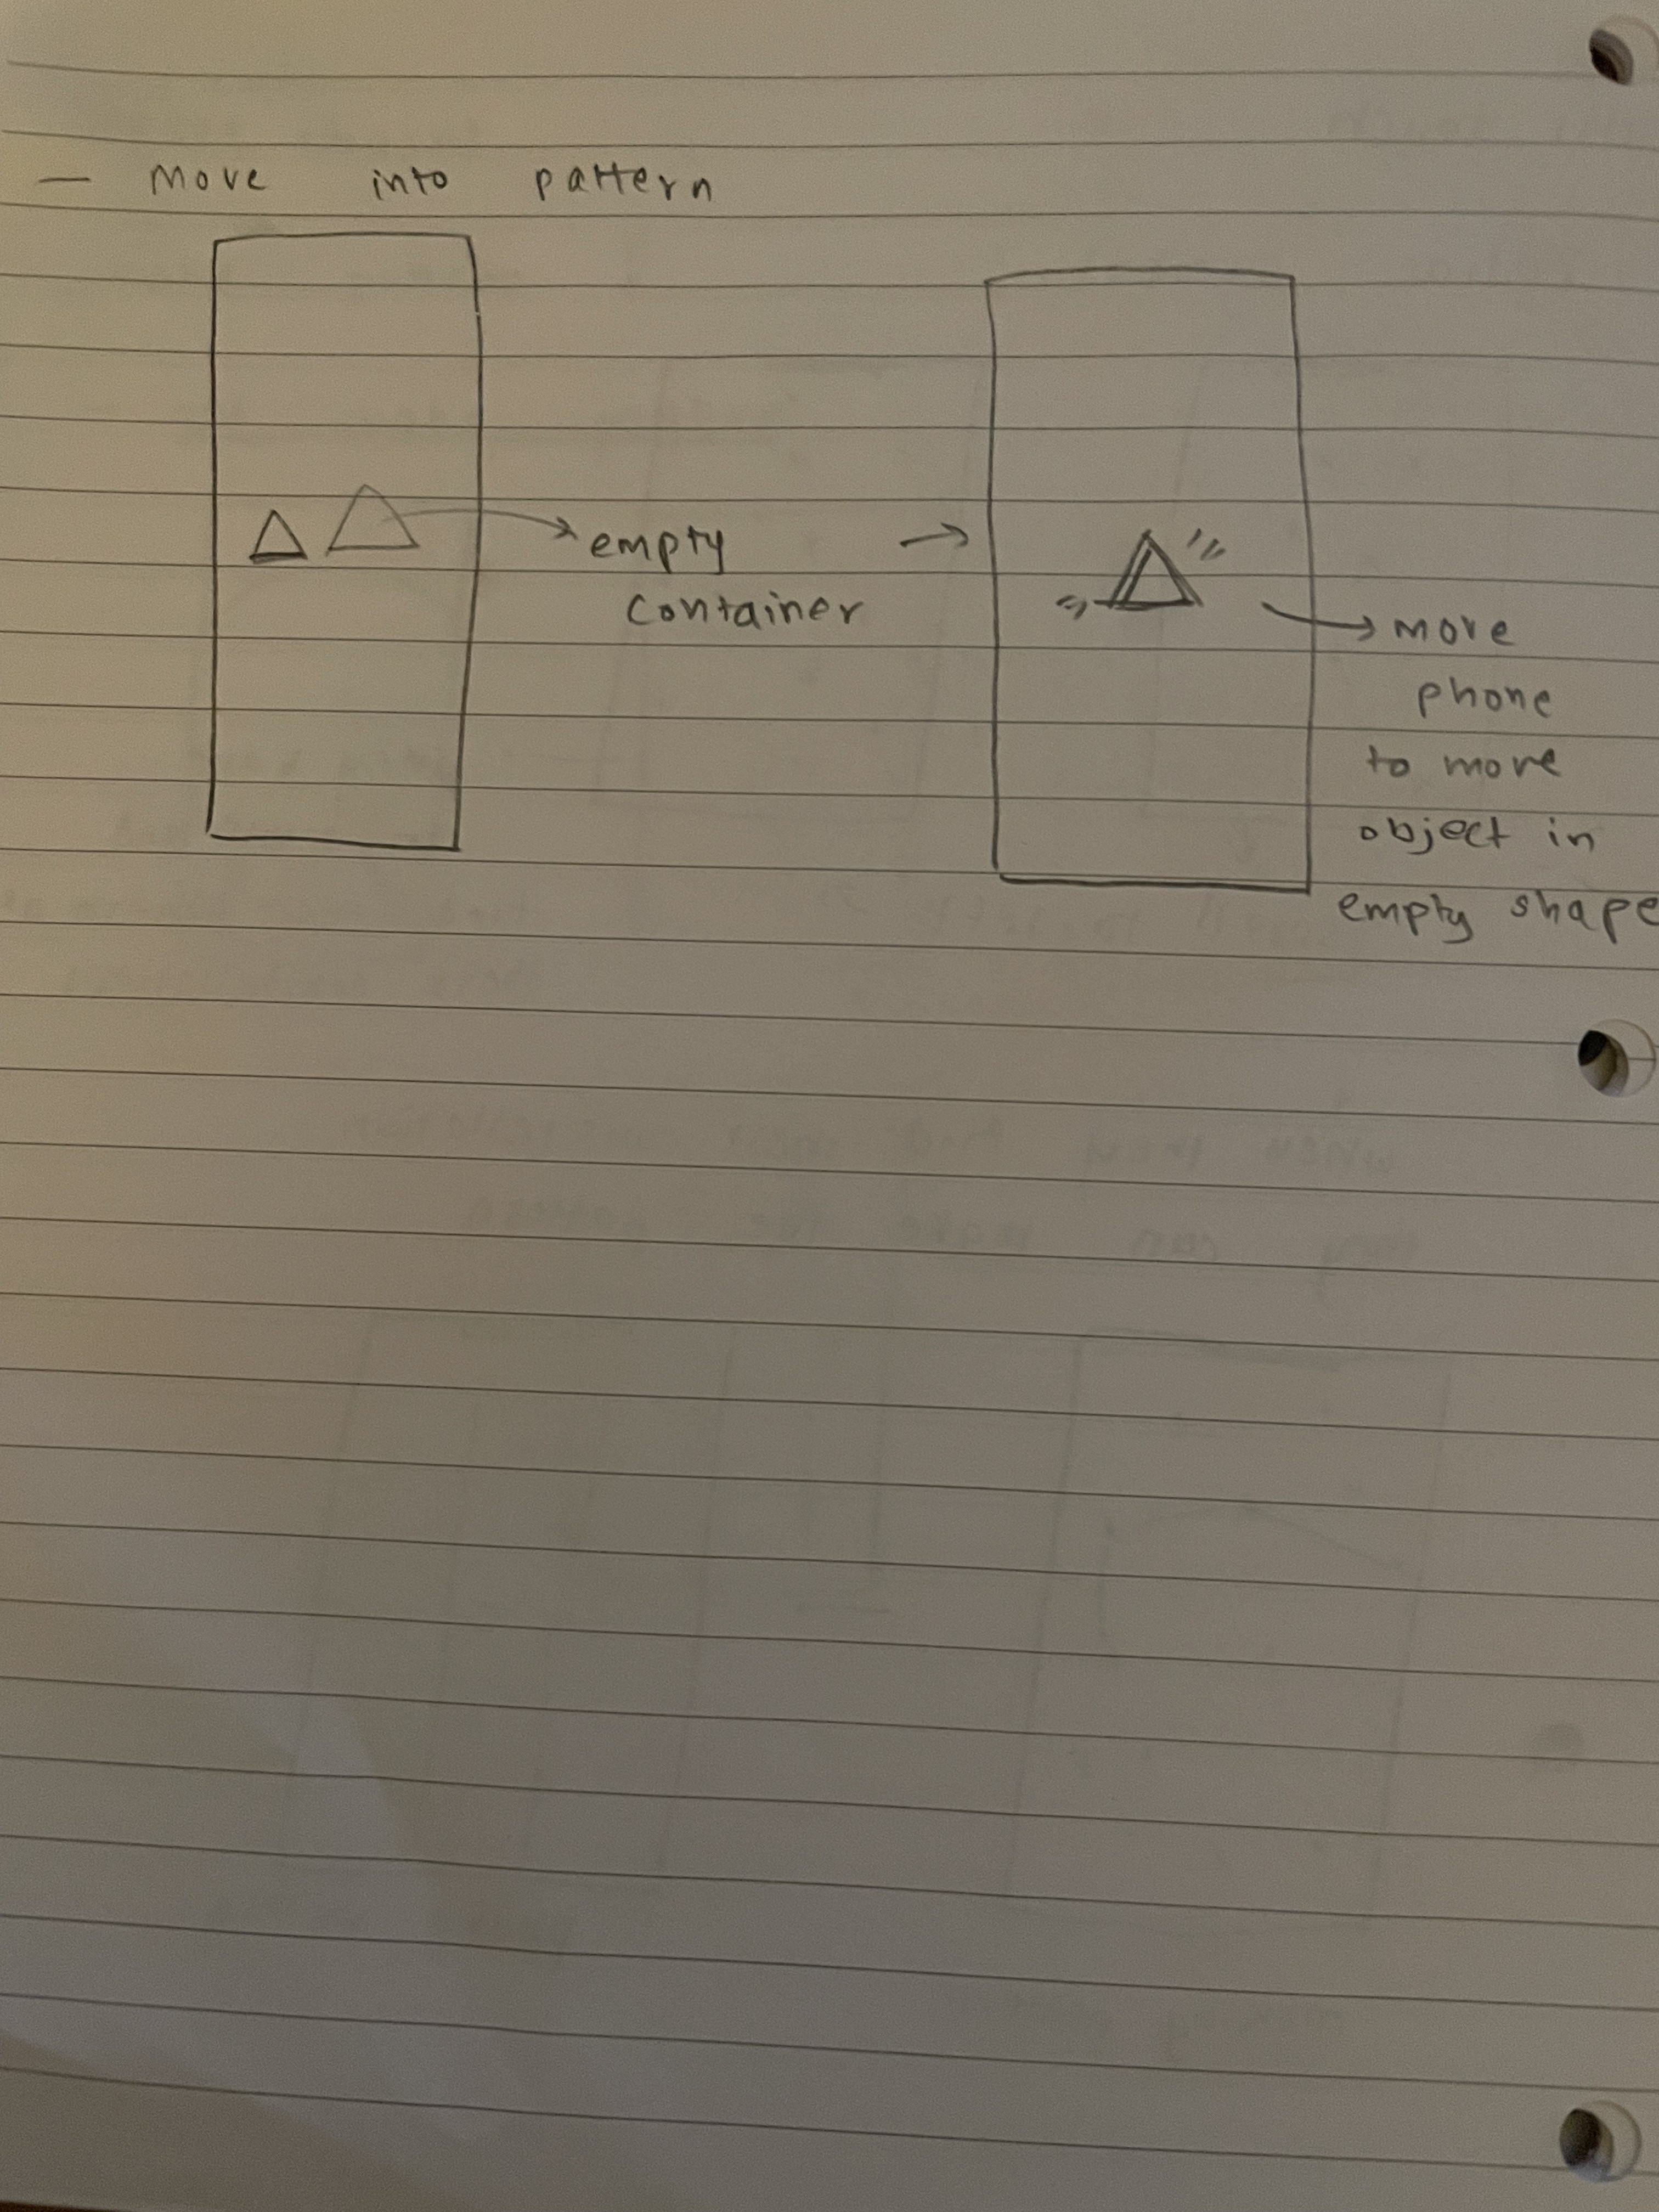 - move into pattern
empty
container
move
phone
to move
object in
empty shape